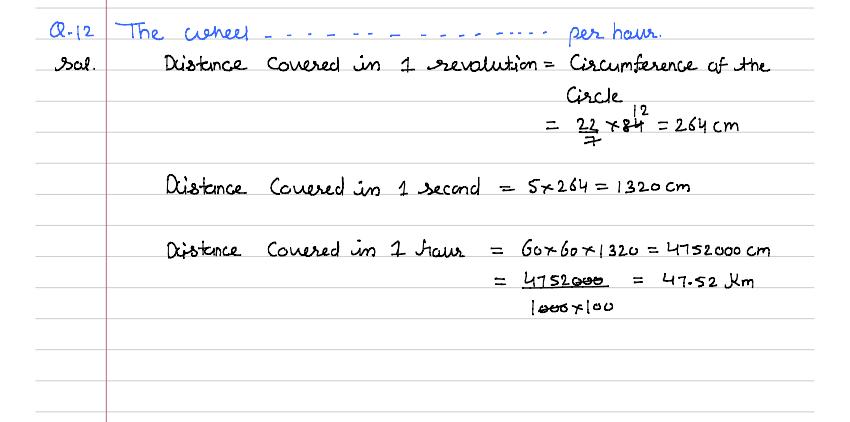 Q.12 The wheel - - - - - - - - - - - - - - - - per hour.
Sol. Distance Covered in 1 revolution = Circumference of the
Circle
= 22/7 × 84 12 = 264 cm
Distance Covered in 1 second = 5×264 = 1320 cm
Distance Covered in 1 hour = 60×60×1320 = 4752000 cm
= 4752000/1000×100 = 47.52 Km